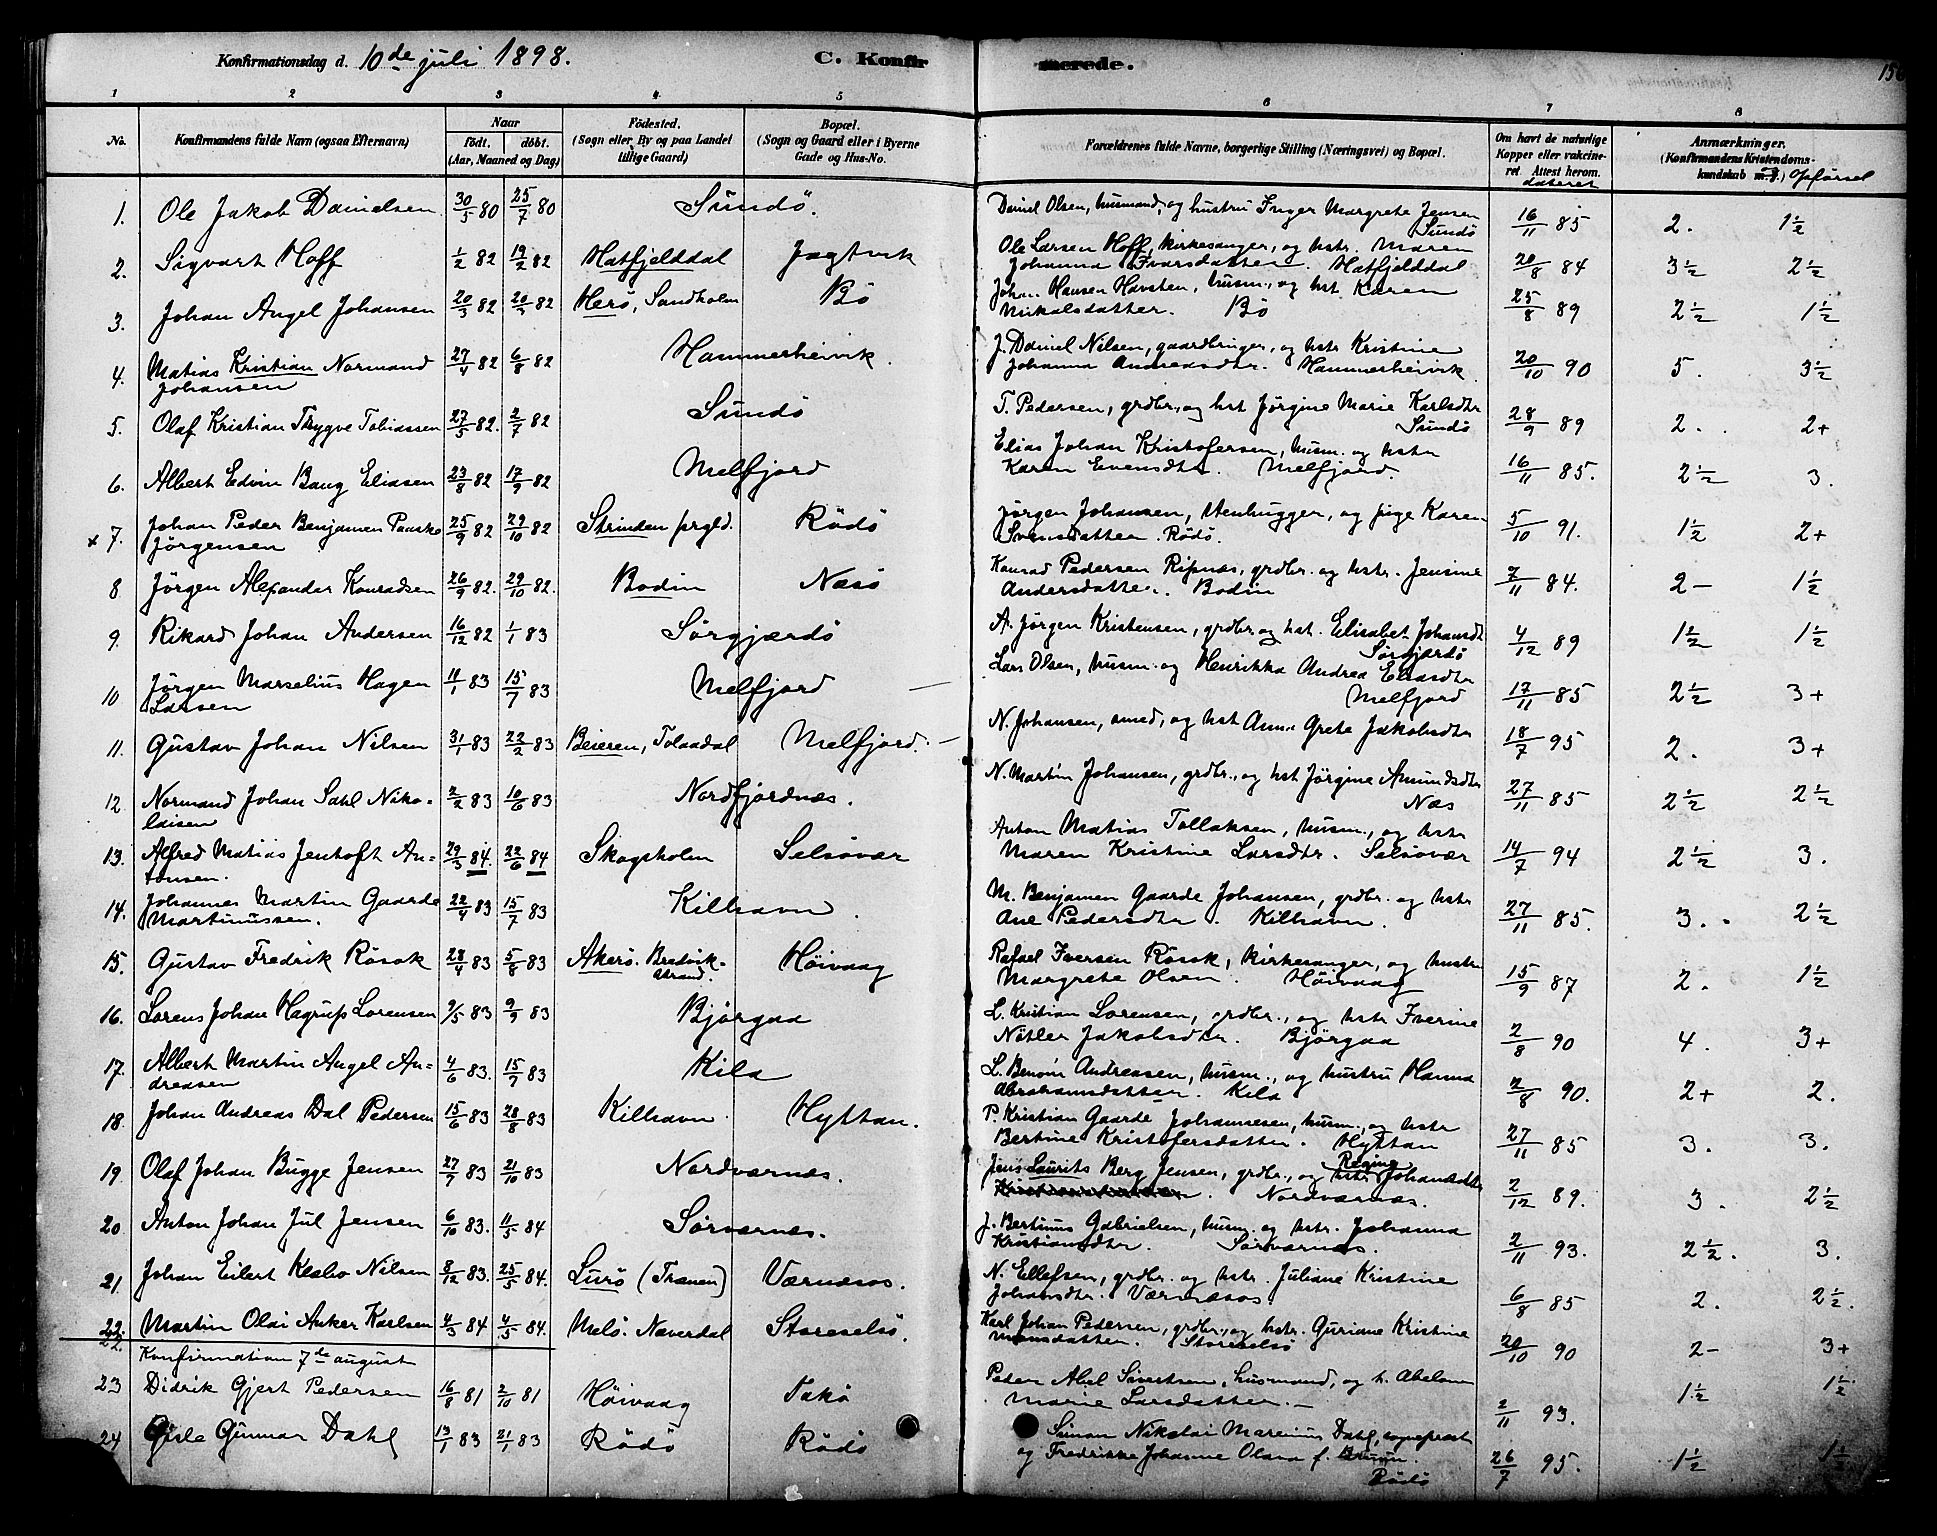 Konfirmationsdag d. 10de juli 1898. C. Konfirmerede. 156
1 2 3 4 5 6 7 8
No. Konfirmandens fulde Navn (ogsaa Efternavn) Naar født. døbt. (Aar, Maaned og Dag) Fødested. (Sogn eller By og paa Landet tillige Gaard) Bopæl. (Sogn og Gaard eller i Byerne Gade og Hus-No. Forældrenes fulde Navne, borgerlige Stilling (Næringsvei) og Bopæl. Om havt de naturlige Kopper eller vakcineret. Attest herom. dateret Anmærkninger. (Konfirmandens Kristendomskundskab m. v.) Opførsel
1. Ole Jakob Danielsen 30/5 80 25/7 80 Sundö. Daniel Olsen, husmand, og hustru Inger Margrete Jensen Sundö 16/11 85 2. 1½
2. Sigvart Hoff 1/2 82 19/2 82 Hatfjelddal Jagtvik Ole Larsen Hoff, kirkesanger, og hstr. Maren Johanna Ivarsdatter. Hatfjelddal 20/8 84 3½ 2½
3. Johan Angel Johansen 20/3 82 20/3 82 Herö, Sandholm Bö Johan Hansen Havsten, husm., og hst. Karen Nikolsdatter. Bö 25/8 89 2½ 1½
4. Matias Kristian Normand Johansen 27/4 82 6/8 82 Hammerheivik. J. Daniel Nilsen, gaardbruger, og hstr Kristine Johanna Andreasdtr. Hammerheivik 20/10 90 5. 3½
5. Olaf Kristian Trygve Tobiassen 27/5 82. 2/7 82 Sundö T. Pedersen, grdbr., og hst Jörgine Marie Karlsdtr Sundö 28/9 89 2. 2+
6. Albert Edvin Bang Eliasen 23/8 82 17/9 82 Melfjord Elias Johan Kristofersen, husm. og hstr Karen Evensdtr. Melfjord. 16/11 85. 2½ 3.
x 7. Johan Peder Benjamen Paaske Jörgensen 25/9 82 29/10 82 Strinden prgld. Rödö Jörgen Johansen, stenhugger, og pige Karen Svensdatter. Rödö. 5/10 91. 1½ 2+
8 Jörgen Alexander Konradsen 26/9 82. 29/10 82. Bodin Nesö Konrad Pedersen Ripnæs, grdbr. og hstr. Jensine Andersdatter. Bodin 7/11 84. 2- 1½
9. Rikard Johan Andersen 16/12 82 1/1 83 Sörgjærdö A. Jörgen Kristensen, grdbr. og hst. Elisabet Johansdt Sörgjærdö 4/12 89 1½ 1½
10 Jörgen Marselius Hagen Larsen 11/1 83 15/7 83 Melfjord Lars Olsen, husm. og Henrikka Andrea Eliasdtr Melfjord 17/11 85 2½ 3+
11. Gustav Johan Nilsen 31/1 83 22/2 83 Beieren, Tolaadal Melfjord. N. Johansen, smed, og hst Anne Grete Jakobsdtr 18/7 95 2. 3+
12. Normand Johan Dahl Nikolaisen 2/2 83 10/6 83 Nordfjordnæs. N. Martin Johansen, grdbr., og hst Jörgine Amundsdtr Næs 27/11 85 2½ 2½
13. Alfred Matias Jentoft Antonsen. 29/3 84. 22/6 84 Skogsholm Selsövær Anton Matias Tollaksen, husm., og hstr Maren Kristine Larsdtr. Selsövær 14/7 94 2½ 3.
14. Johannes Martin Gaarde Martinussen. 22/4 83 15/7 83 Kilhavn. M. Benjamen Gaarde Johansen, grdbr. og hstr Ane Pedersdtr. Kilhavn. 27/11 85. 3. 2½
15. Gustav Fredrik Rösok 28/4 83 5/8 83 Akerö. Bredvikstrand. Höivaag Rafael Iversen Rösok, kirkesanger, og hustru Margrete Olsen. Höivaag 15/9 87 2. 1½
16. Lorens Johan Hagrup Lorensen 9/5 83 9/9 83 Bjørgaa L. Kristian Lorensen, grdbr., og hstr Iverine Jakobsdtr. Bjørgaa 2/8 90 4. 3+
17. Albert Martin Angel Andreasen 4/6 83. 15/7 83 Kila L. Benoni Andreasen, husm., og hustru Hanna Abrahamsdatter. Kila 2/8 90. 2+ 2.
18. Johan Andreas Dal Pedersen 15/6 83 28/8 83 Kilhavn. Hyttan. P. Kristian Gaarde Johannesen, husm., og hstr Bertine Kristofersdatter. Hyttan 27/11 85 3. 3.
19 Olaf Johan Bugge Jensen 27/7 83 21/10 83 Nordværnes. Jens Laurits Berg Jensen, grdbr., og hstr. Regine Johansdtr. Nordværnæs. 2/12 89. 3. 2½
20 Anton Johan Jul Jensen 6/10 83. 11/5 84 Sörværnes. J. Bertinus Gabrielsen, husm. og hstr. Johanna Kristiansdtr. Sörværnæs. 2/11 93. 2½. 3.
21. Johan Eilert Klæbo Nilsen 8/12 83. 25/5 84. Lurö (Trænen) Værnæsos. N. Ellefsen, grdbr. og hstr. Juliane Kristine Johansdtr. Værnæsos. 6/8 85 2. 2½.
22. Martin Olai Anker Karlsen 4/3 84 4/5 84. Melö. Neverdal Storeselsö. Karl Johan Pedersen, grdbr., og hstr. Guriane Kristine Monsdatter. Storeselsö 20/10 90 2- 3+
22. Konfirmation 7de august
23 Didrik Gjert Pedersen 16/8 81 2/10 81 Höivaag Peder Abel Sivertsen, husmand, og h. Abelone Marie Larsdatter. 2/11 93. 1½ 1½
24 Gisle Gunnar Dahl 13/1 83 21/1 83 Rödö Rödö Simon Nikolai Marenius Dahl, sogneprest og Fredrikke Johanne Olava f. Bruun. Rödö 26/7 95. 1½ 1½